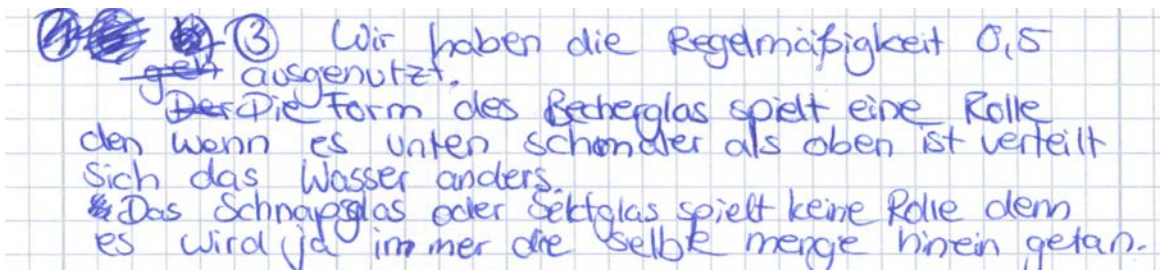 ③ Wir haben die Regelmäßigkeit 0,5
geh ausgenutzt.
Der Die Form des Becherglas spielt eine Rolle
den wenn es unten schmaler als oben ist verteilt
sich das Wasser anders.
Das Schnapsglas oder Sektglas spielt keine Rolle denn
es wird ja immer die selbe menge hinein getan.